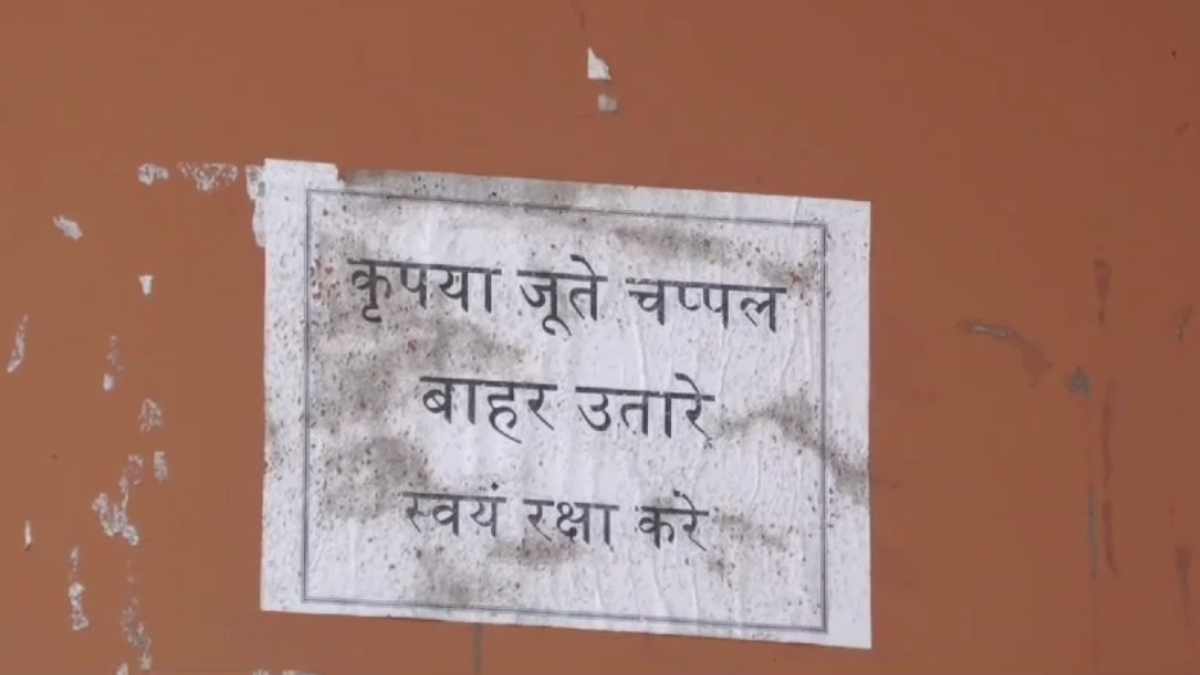 कृपया जूते चप्पल
बाहर उतारे
स्वयं रक्षा करे